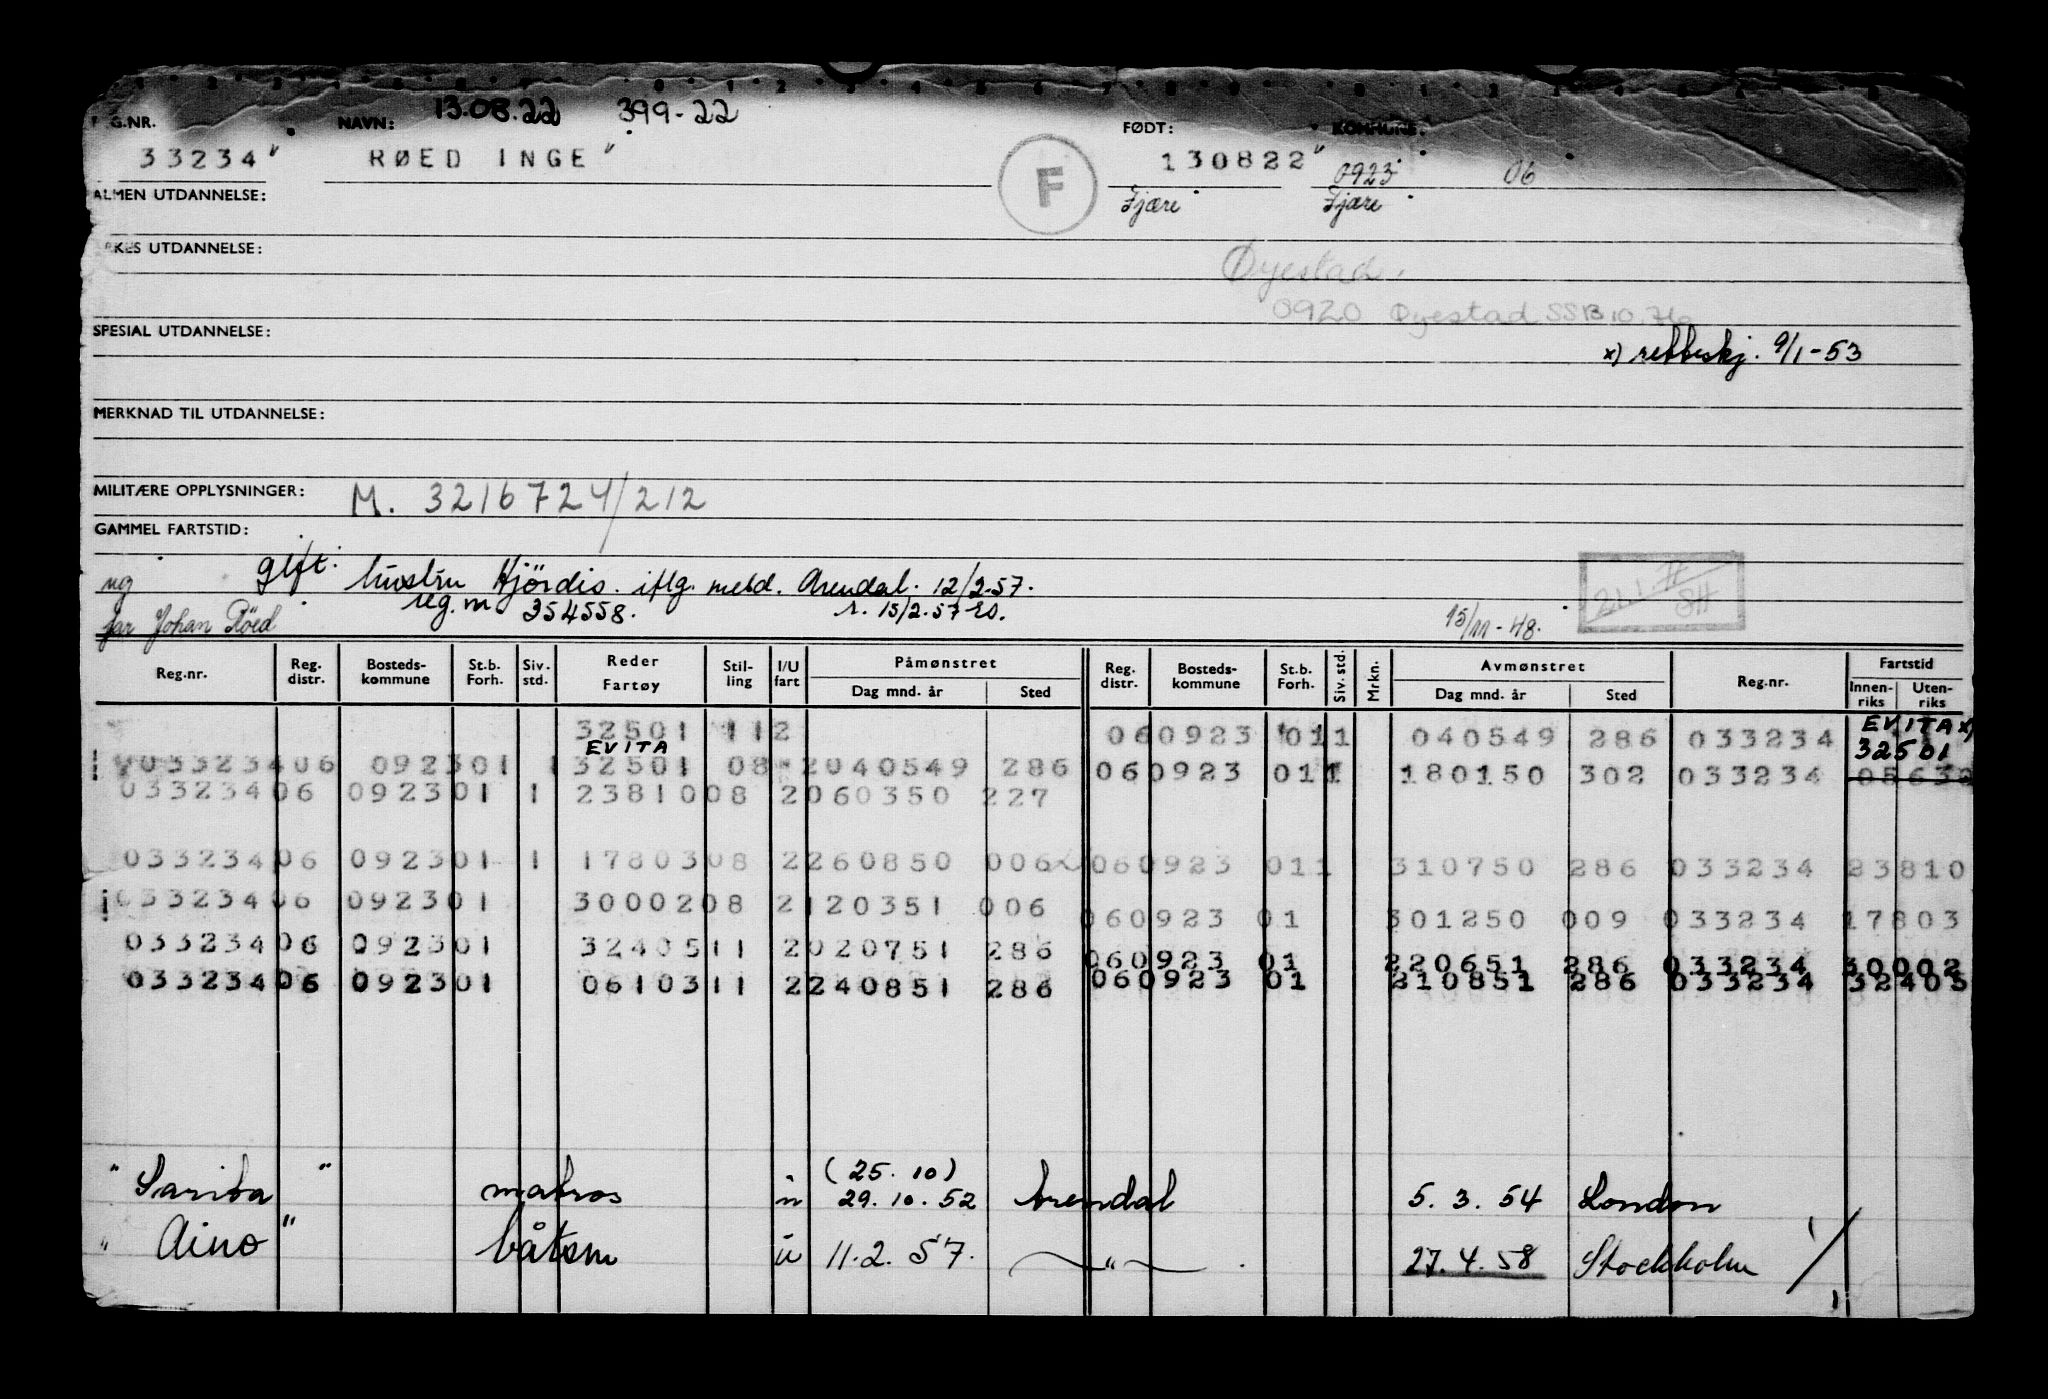 13.08.22 399-22
REG.NR. NAVN: FØDT: KOMMUNE:
33234 RØED INGE F 130822 0923 06
ALMEN UTDANNELSE: Fjære Fjære
YRKES UTDANNELSE:
Øyestad
0920 Øyestad SSB 10.76
SPESIAL UTDANNELSE:
x) rettbeskj. 9/1-53
MERKNAD TIL UTDANNELSE:
MILITÆRE OPPLYSNINGER: M. 3216724/212
GAMMEL FARTSTID:
ug gift: hustru Hjördis. iflg. meld. Arendal. 12/2-57.
reg. nr 354558. r. 15/2-57
far Johan Röed 15/11-48.
Reg.nr. Reg. distr. Bosteds-kommune St.b. Forh. Siv. std. Reder Fartøy Stil-ling I/U fart Påmønstret Dag mnd. år Sted Reg. distr. Bosteds-kommune St.b. Forh. Siv. std. Mrkn. Avmønstret Dag mnd. år Sted Reg.nr. Fartstid Innen-riks Uten-riks
32501 112 060923 011 040549 286 033234 EVITA x)
EVITA 32501
033234 06 092301 1 32501 08 2040549 286 060923 011 180150 302 033234
033234 06 092301 1 23810 08 2060350 227
033234 06 092301 1 17803 08 2260850 006 060923 011 310750 286 033234 23810
033234 06 092301 30002 08 2120351 006 060923 01 301250 009 033234 17803
033234 06 092301 32405 11 2020751 286 060923 01 220651 286 033234 30002
033234 06 092301 06103 11 2240851 286 060923 01 210851 286 033234 32405
(25. 10)
"Sariba" matros u 29.10.52 Arendal 5. 3. 54 London
"Aino" båtsm u 11.2. 57. —"— 27.4.58 Stockholm